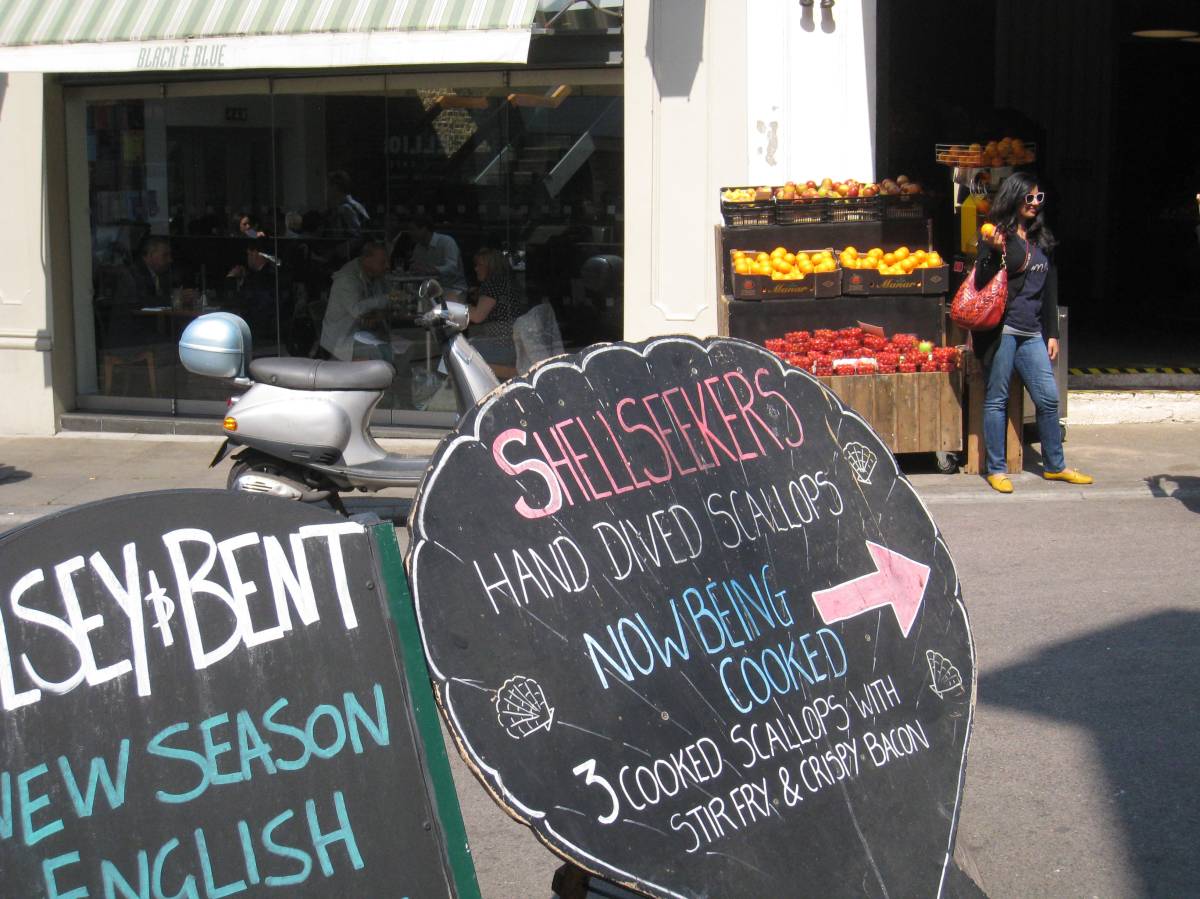 BLACK & BLUE
Manar
Manar
SHELLSEEKERS
HAND DIVED SCALLOPS
NOW BEING
COOKED
3 COOKED SCALLOPS WITH
STIR FRY & CRISPY BACON
LSEY & BENT
NEW SEASON
ENGLISH